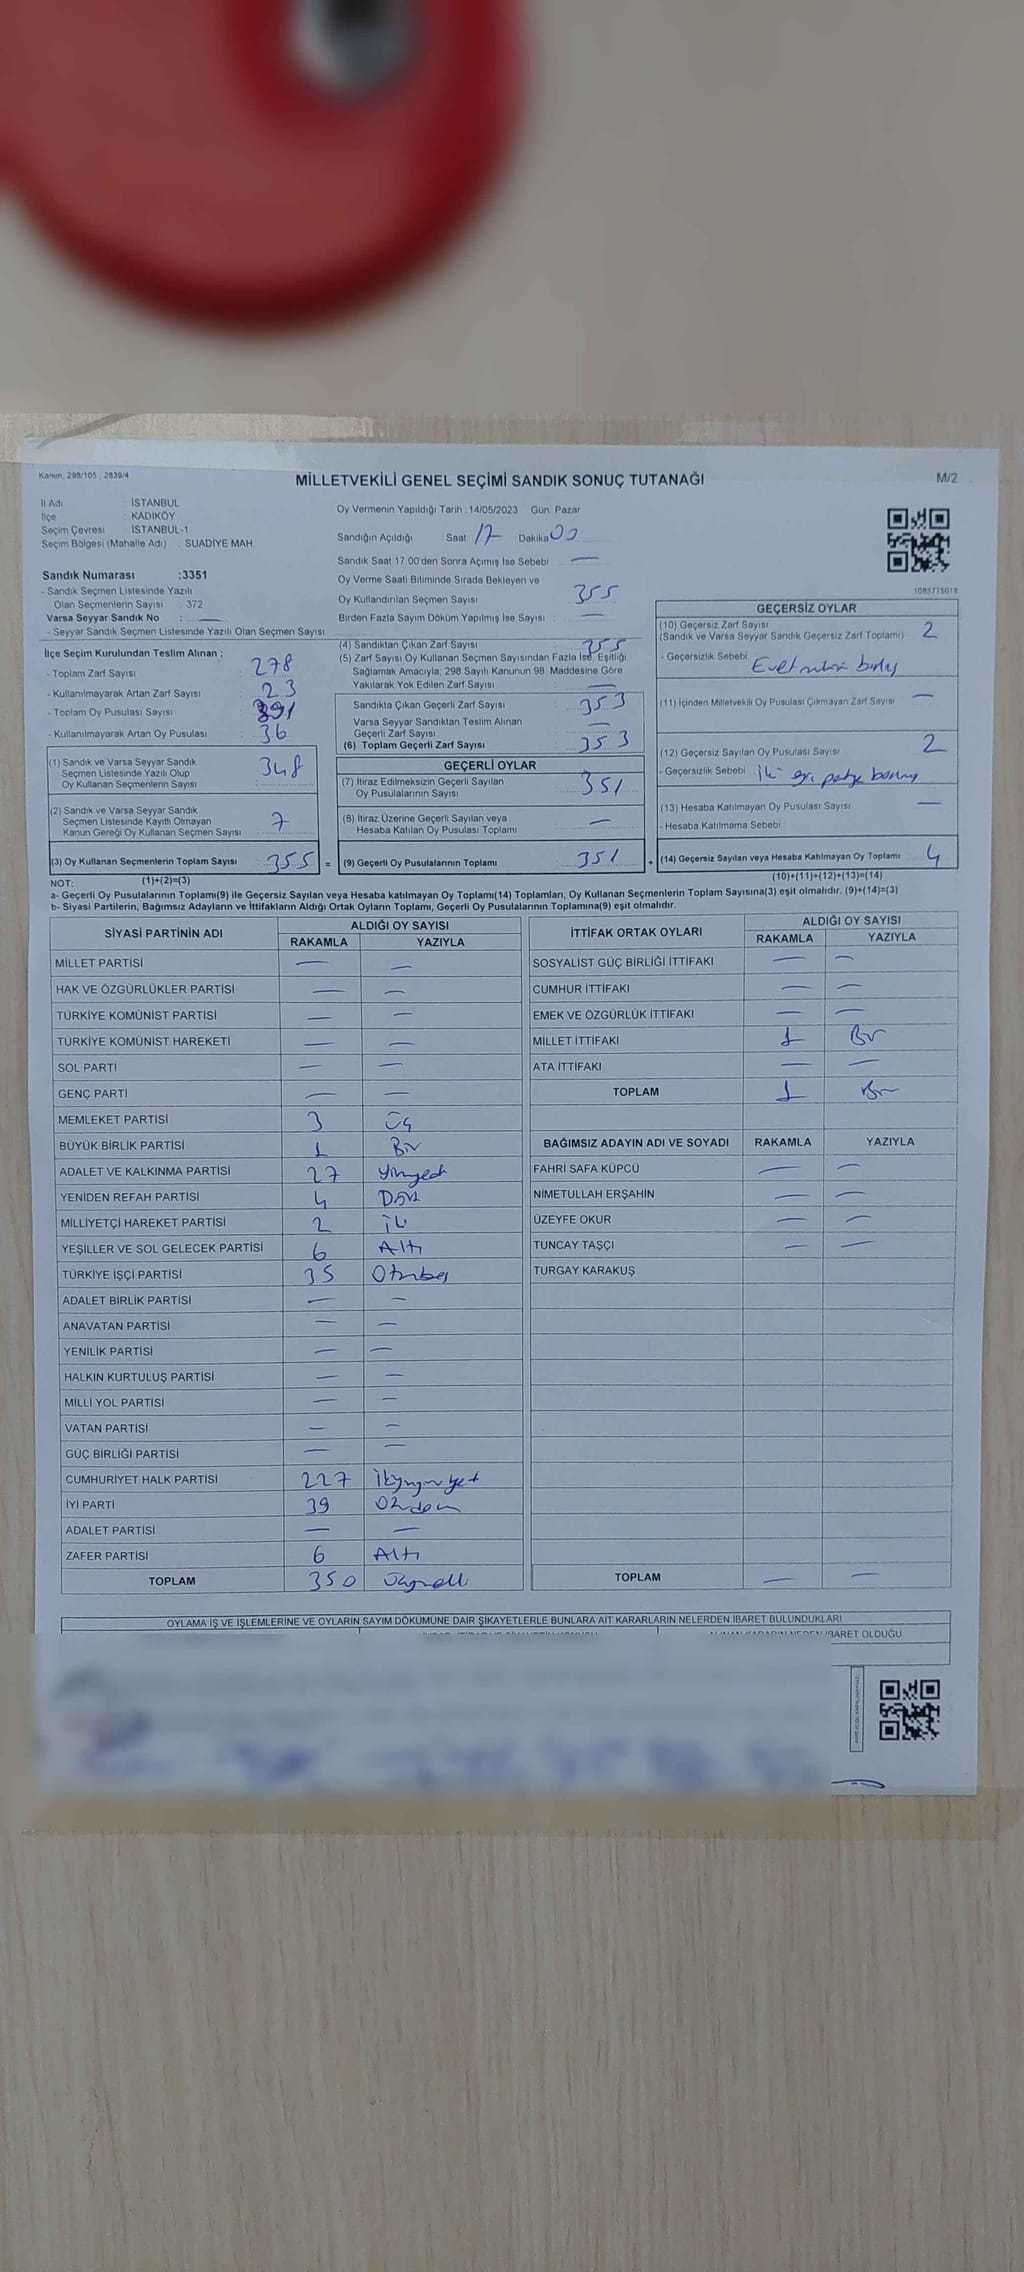 Kanun: 298/105 ; 2839/4
MİLLETVEKİLİ GENEL SEÇİMİ SANDIK SONUÇ TUTANAĞI
M/2
İl Adı İSTANBUL
İlçe KADIKÖY
Seçim Çevresi : İSTANBUL-1
Seçim Bölgesi (Mahalle Adı) : SUADİYE MAH.
Sandık Numarası :3351
- Sandık Seçmen Listesinde Yazılı
Olan Seçmenlerin Sayısı : 372
Varsa Seyyar Sandık No : —
- Seyyar Sandık Seçmen Listesinde Yazılı Olan Seçmen Sayısı
Oy Vermenin Yapıldığı Tarih :14/05/2023 Gün: Pazar
Sandığın Açıldığı Saat 17 Dakika 00
Sandık Saat 17:00'den Sonra Açımış İse Sebebi : —
Oy Verme Saati Bitiminde Sırada Bekleyen ve
Oy Kullandırılan Seçmen Sayısı 355
Birden Fazla Sayım Döküm Yapılmış İse Sayısı : —
1083775018
İlçe Seçim Kurulundan Teslim Alınan ;
- Toplam Zarf Sayısı : 278
- Kullanılmayarak Artan Zarf Sayısı : 23
- Toplam Oy Pusulası Sayısı : 391
- Kullanılmayarak Artan Oy Pusulası : 36
(1) Sandık ve Varsa Seyyar Sandık
Seçmen Listesinde Yazılı Olup
Oy Kullanan Seçmenlerin Sayısı 348
(2) Sandık ve Varsa Seyyar Sandık
Seçmen Listesinde Kayıtlı Olmayan
Kanun Gereği Oy Kullanan Seçmen Sayısı 7
(3) Oy Kullanan Seçmenlerin Toplam Sayısı : 355 =
(1)+(2)=(3)
(4) Sandıktan Çıkan Zarf Sayısı 355
(5) Zarf Sayısı Oy Kullanan Seçmen Sayısından Fazla İse, Eşitliği
Sağlamak Amacıyla; 298 Sayılı Kanunun 98. Maddesine Göre
Yakılarak Yok Edilen Zarf Sayısı —
Sandıkta Çıkan Geçerli Zarf Sayısı 353
Varsa Seyyar Sandıktan Teslim Alınan
Geçerli Zarf Sayısı —
(6) Toplam Geçerli Zarf Sayısı 353
GEÇERLİ OYLAR
(7) İtiraz Edilmeksizin Geçerli Sayılan
Oy Pusulalarının Sayısı 351
(8) İtiraz Üzerine Geçerli Sayılan veya
Hesaba Katılan Oy Pusulası Toplamı —
(9) Geçerli Oy Pusulalarının Toplamı 351 +
GEÇERSİZ OYLAR
(10) Geçersiz Zarf Sayısı
(Sandık ve Varsa Seyyar Sandık Geçersiz Zarf Toplamı) 2
- Geçersizlik Sebebi
(11) İçinden Milletvekili Oy Pusulası Çıkmayan Zarf Sayısı —
(12) Geçersiz Sayılan Oy Pusulası Sayısı 2
- Geçersizlik Sebebi
(13) Hesaba Katılmayan Oy Pusulası Sayısı —
- Hesaba Katılmama Sebebi
(14) Geçersiz Sayılan veya Hesaba Katılmayan Oy Toplamı 4
(10)+(11)+(12)+(13)=(14)
NOT:
a- Geçerli Oy Pusulalarının Toplamı(9) ile Geçersiz Sayılan veya Hesaba katılmayan Oy Toplamı(14) Toplamları, Oy Kullanan Seçmenlerin Toplam Sayısına(3) eşit olmalıdır. (9)+(14)=(3)
b- Siyasi Partilerin, Bağımsız Adayların ve İttifakların Aldığı Ortak Oyların Toplamı, Geçerli Oy Pusulalarının Toplamına(9) eşit olmalıdır.
SİYASİ PARTİNİN ADI ALDIĞI OY SAYISI
RAKAMLA YAZIYLA
MİLLET PARTİSİ — —
HAK VE ÖZGÜRLÜKLER PARTİSİ — —
TÜRKİYE KOMÜNİST PARTİSİ — —
TÜRKİYE KOMÜNİST HAREKETİ — —
SOL PARTİ — —
GENÇ PARTİ — —
MEMLEKET PARTİSİ 3 Üç
BÜYÜK BİRLİK PARTİSİ 1 Bir
ADALET VE KALKINMA PARTİSİ 27 Yirmiyedi
YENİDEN REFAH PARTİSİ 4 Dört
MİLLİYETÇİ HAREKET PARTİSİ 2 İki
YEŞİLLER VE SOL GELECEK PARTİSİ 6 Altı
TÜRKİYE İŞÇİ PARTİSİ 35 Otuzbeş
ADALET BİRLİK PARTİSİ — —
ANAVATAN PARTİSİ — —
YENİLİK PARTİSİ — —
HALKIN KURTULUŞ PARTİSİ — —
MİLLİ YOL PARTİSİ — —
VATAN PARTİSİ — —
GÜÇ BİRLİĞİ PARTİSİ — —
CUMHURİYET HALK PARTİSİ 227 İkiyüzyirmiyedi
İYİ PARTİ 39 Otuzdokuz
ADALET PARTİSİ — —
ZAFER PARTİSİ 6 Altı
TOPLAM 350 Üçyüzelli
İTTİFAK ORTAK OYLARI ALDIĞI OY SAYISI
RAKAMLA YAZIYLA
SOSYALİST GÜÇ BİRLİĞİ İTTİFAKI — —
CUMHUR İTTİFAKI — —
EMEK VE ÖZGÜRLÜK İTTİFAKI — —
MİLLET İTTİFAKI 1 Bir
ATA İTTİFAKI — —
TOPLAM 1 Bir
BAĞIMSIZ ADAYIN ADI VE SOYADI RAKAMLA YAZIYLA
FAHRİ SAFA KÜPCÜ — —
NİMETULLAH ERŞAHİN — —
ÜZEYFE OKUR — —
TUNCAY TAŞÇI — —
TURGAY KARAKUŞ
TOPLAM — —
OYLAMA İŞ VE İŞLEMLERİNE VE OYLARIN SAYIM DÖKÜMÜNE DAİR ŞİKAYETLERLE BUNLARA AİT KARARLARIN NELERDEN İBARET BULUNDUKLARI
ALINAN KARARIN NEDEN İBARET OLDUĞU